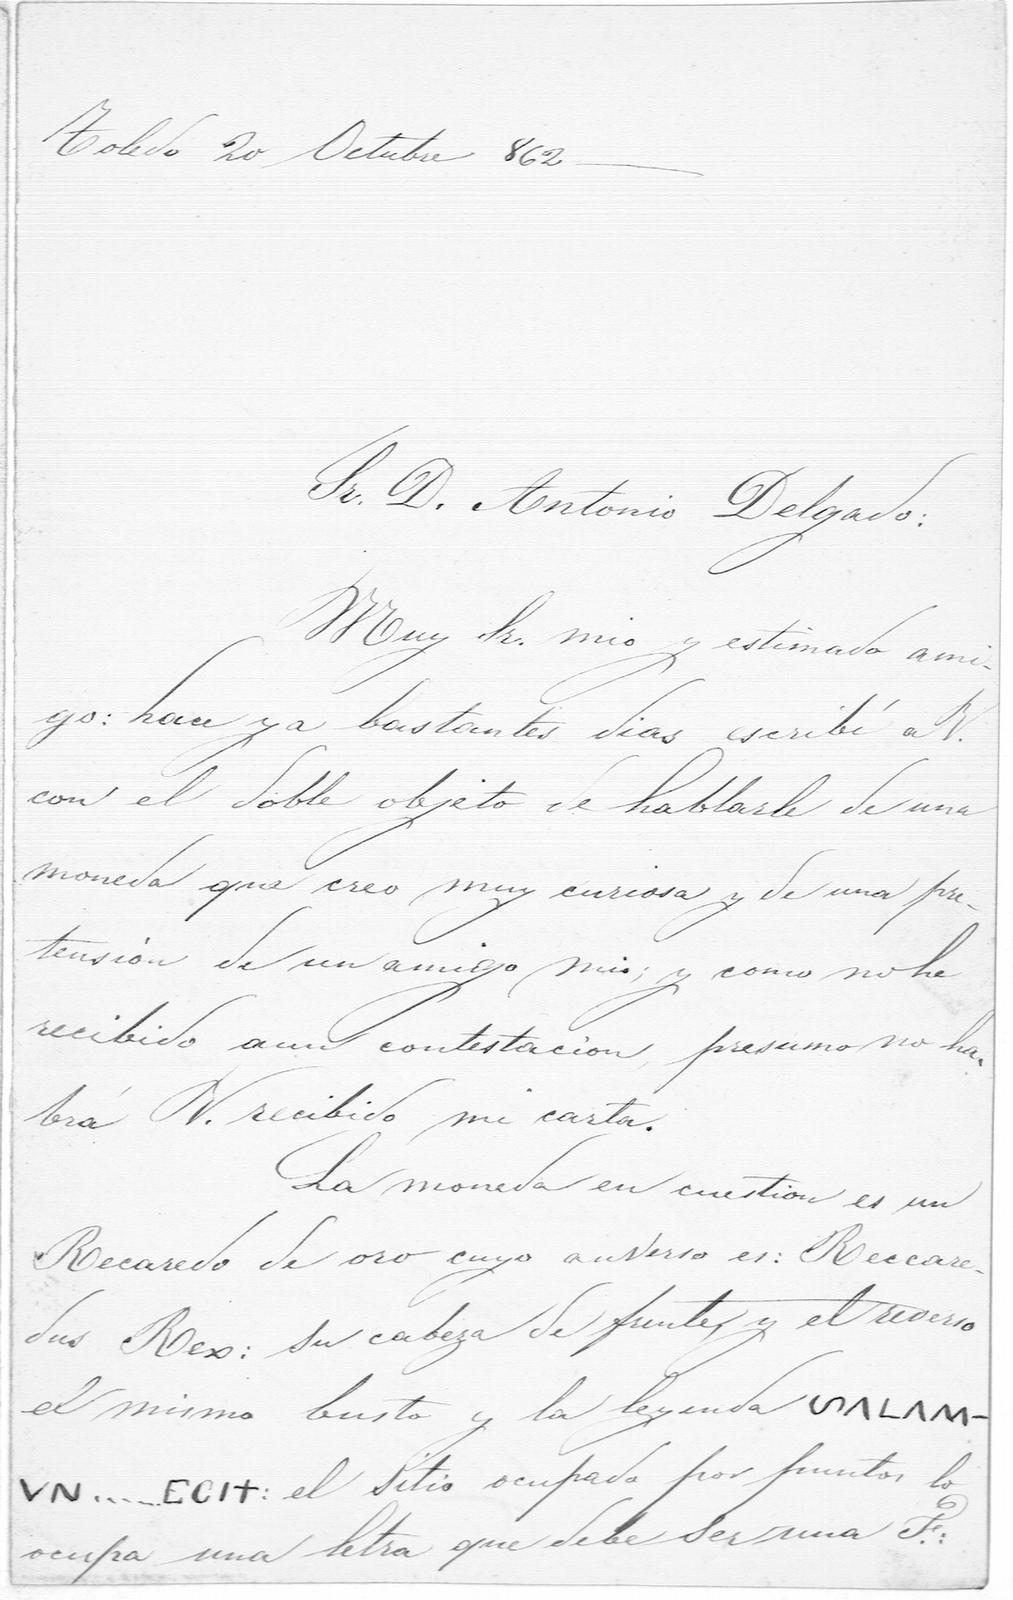 Toledo 20 Octubre 862
Sr. D. Antonio Delgado:
Muy Sr. mio y estimado ami-
go: hace ya bastantes dias escribí a V.
con el doble objeto de hablarle de una
moneda que creo muy curiosa y de una pre-
tensión de un amigo mio; y como no he
recibido aun contestacion, presumo no ha-
brá V. recibido mi carta.
La moneda en cuestion es un
Recaredo de oro cuyo anverso es: Reccare-
dus Rex: su cabeza de frente, y el reverso
el mismo busto y la leyenda SALAM-
VN.....ECIT: el sitio ocupado por puntos lo
ocupa una letra que debe ser una F.: